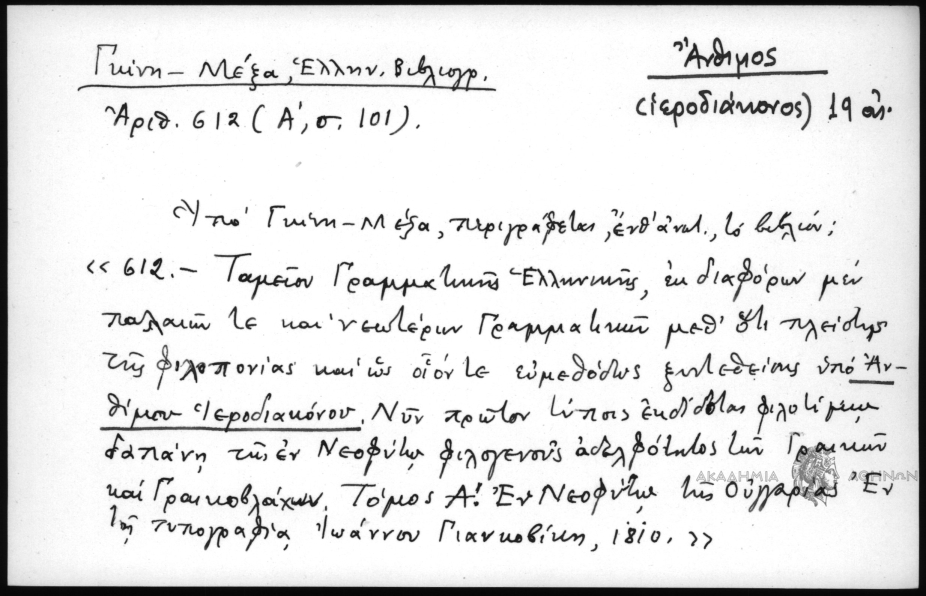 Γκίνη – Μέξα, Ἑλλην. Βιβλιογρ.
Ἀριθ. 612 (Α', σ. 101).
Ἄνθιμος
(ἱεροδιάκονος) 19 αἰ.
Ὑπό Γκίνη – Μέξα, περιγράφεται, ἔνθ' ἀνωτ., τό βιβλίον;
«612. – Ταμεῖον Γραμματικῆς Ἑλληνικῆς, ἐκ διαφόρων μέν
παλαιῶν τε καί νεωτέρων Γραμματικῶν μεθ' ὅτι πλείστης
τῆς φιλοπονίας καί ὡς οἷόν τε εὐμεθόδως ξυντεθείσης ὑπό Ἀν-
θίμου Ἱεροδιακόνου. Νῦν πρῶτον τύποις ἐκδίδοται φιλοτίμῳ
δαπάνῃ τῆς ἐν Νεοφύτῳ φιλογενοῦς ἀδελφότητος τῶν Γραικῶν
καί Γραικοβλάχων. Τόμος Α'. Ἐν Νεοφύτῳ τῆς Οὑγγαρίας Ἐν
τῇ τυπογραφίᾳ Ἰωάννου Γιανκοβίκη, 1810.»
ΑΚΑΔΗΜΙΑ ΑΘΗΝΩΝ